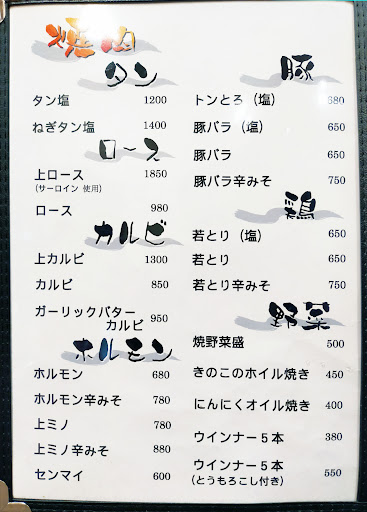 焼肉
タン
タン塩 1200
ねぎタン塩 1400
ロース
上ロース 1850
(サーロイン 使用)
ロース 980
カルビ
上カルビ 1300
カルビ 850
ガーリックバター
カルビ 950
ホルモン
ホルモン 680
ホルモン辛みそ 780
上ミノ 780
上ミノ辛みそ 880
センマイ 600
豚
トンとろ（塩） 680
豚バラ（塩） 650
豚バラ 650
豚バラ辛みそ 750
鶏
若とり（塩） 650
若とり 650
若とり辛みそ 750
野菜
焼野菜盛 500
きのこのホイル焼き 450
にんにくオイル焼き 400
ウインナー５本 380
ウインナー５本 550
(とうもろこし付き)